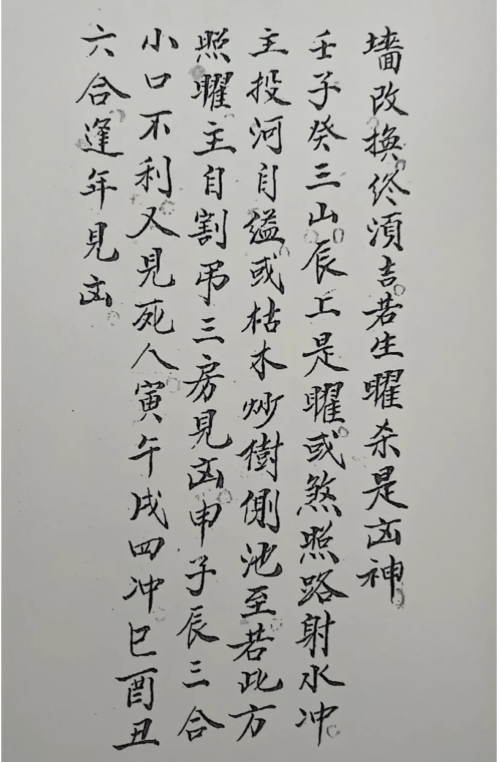 墙改换终须吉若生曜杀是凶神
壬子癸三山辰上是曜或煞照路射水冲
主投河自缢或枯木炒樹側池至若此方
照曜主自割吊三房見凶申子辰三合
小口不利又見死人寅午戌四冲巳酉丑
六合逢年見凶